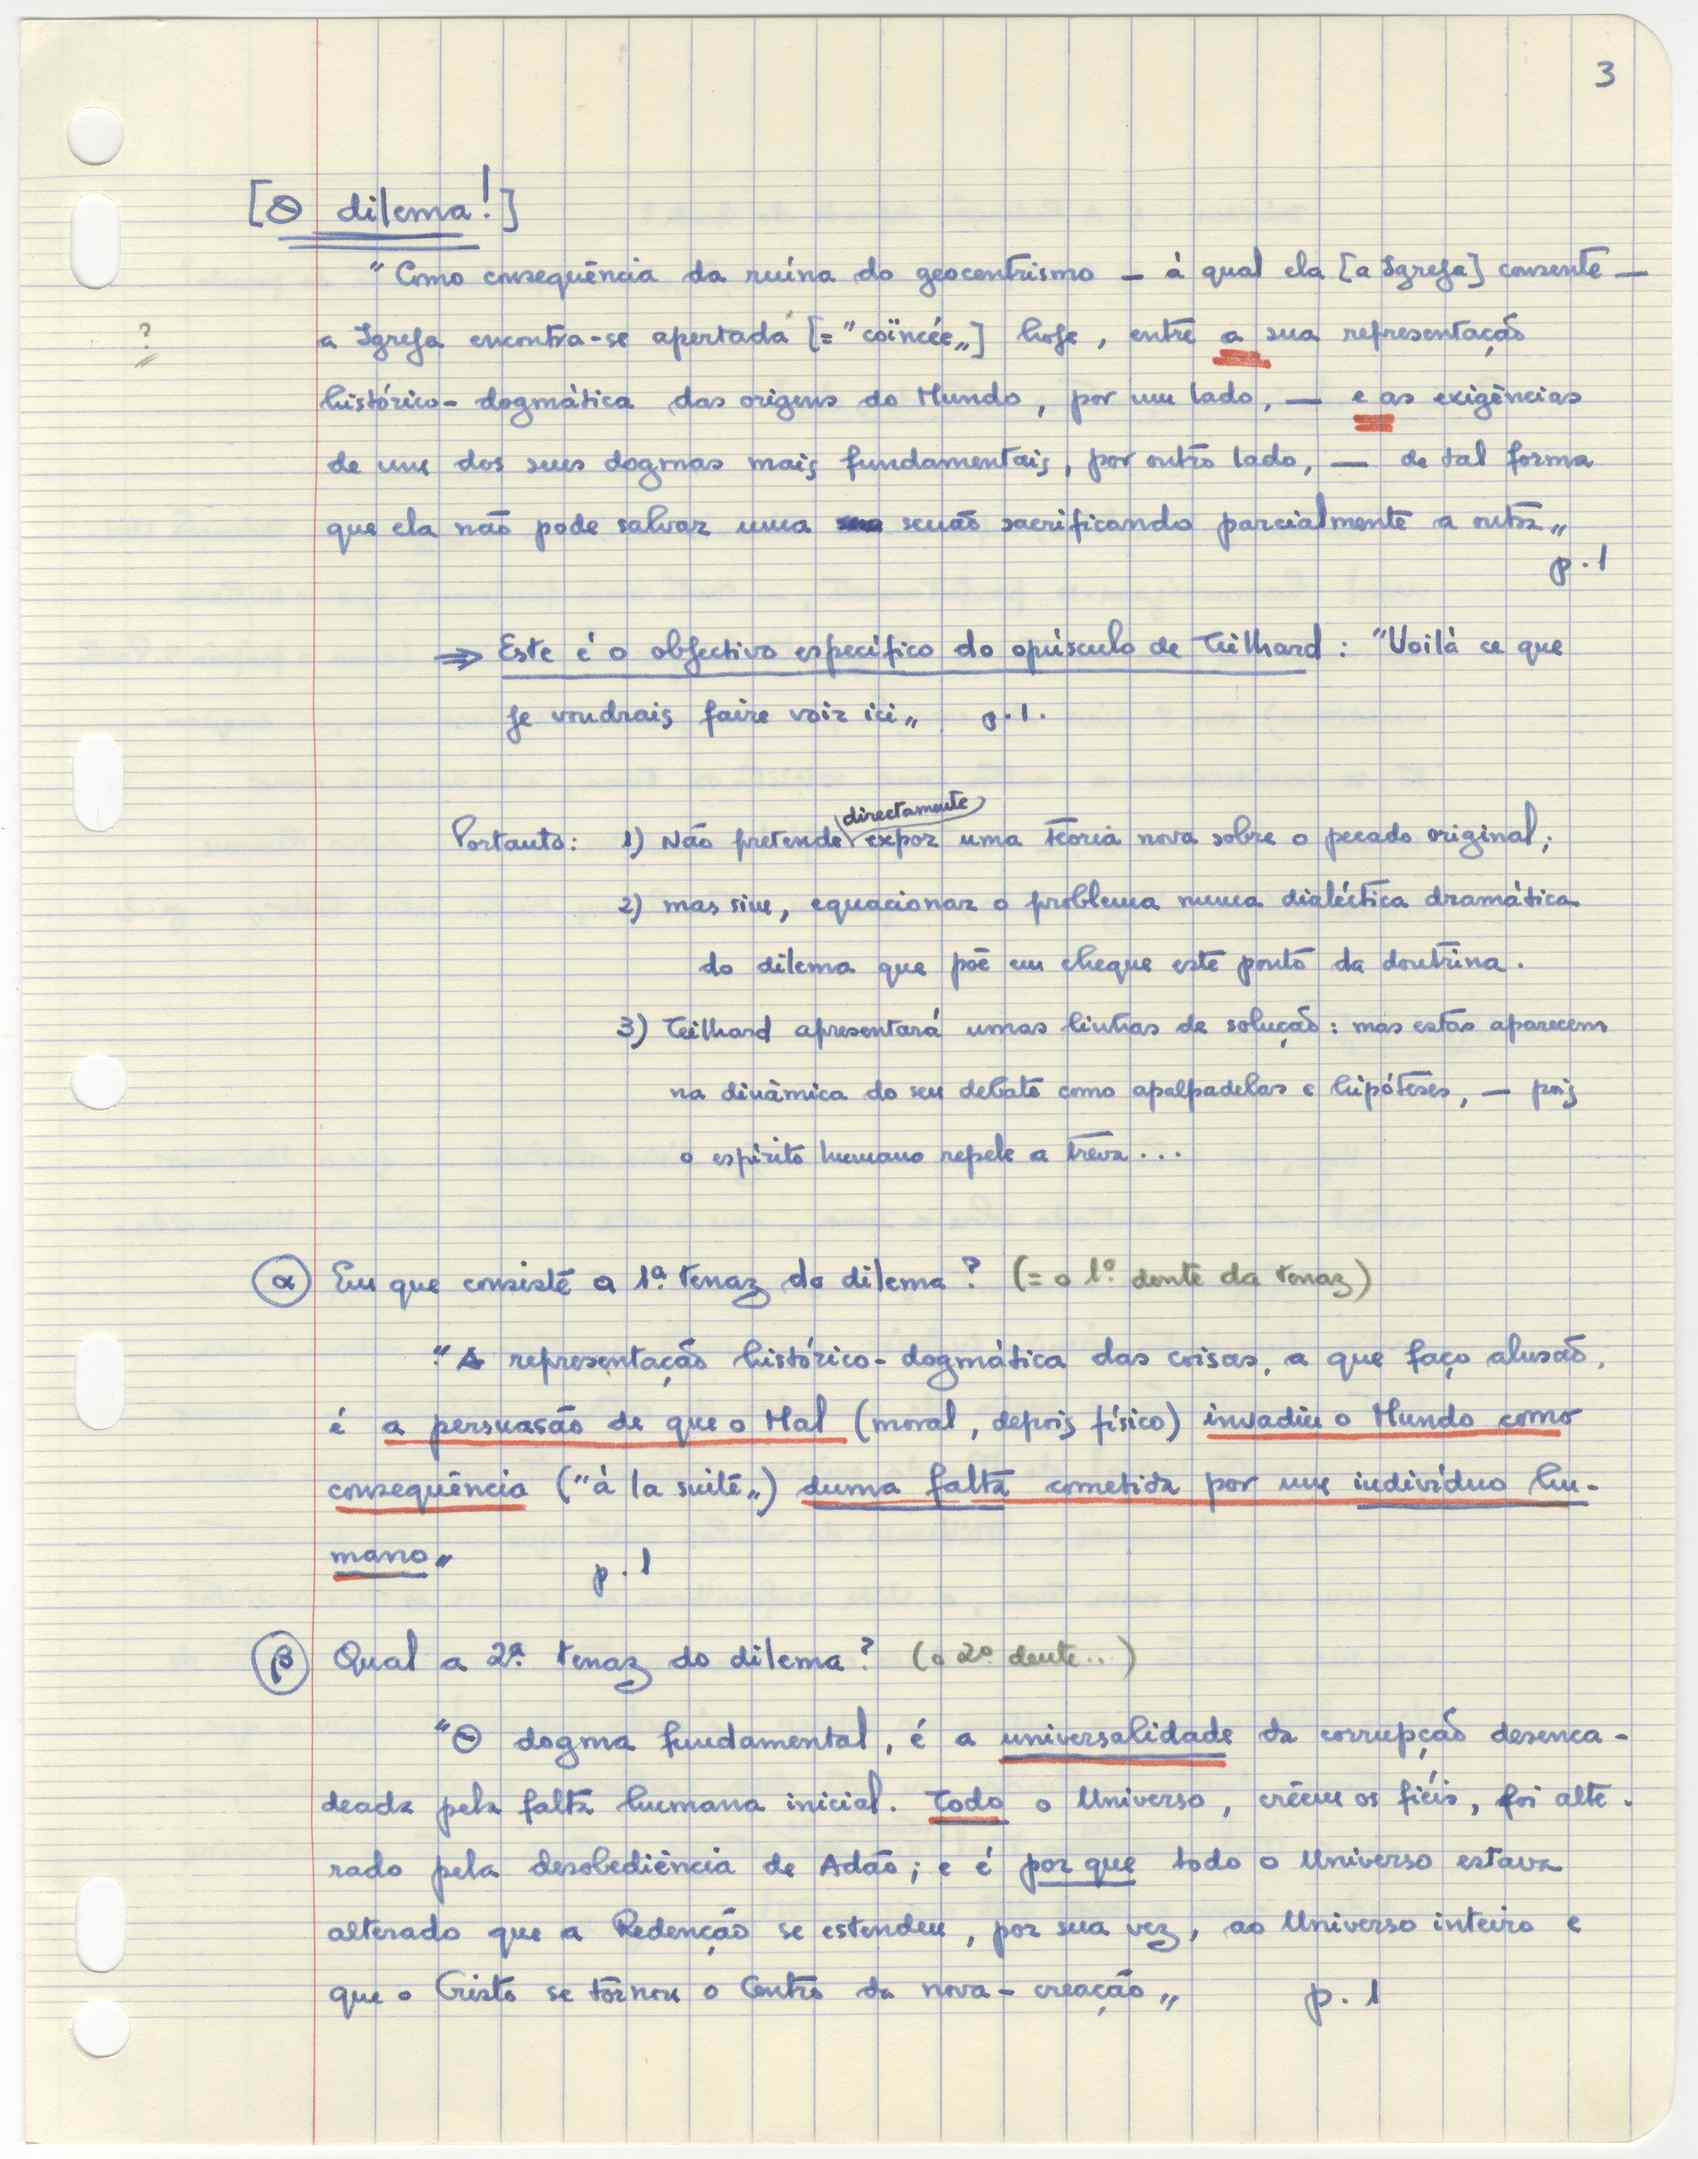 3
[O dilema!]
"Como consequência da ruína do geocentrismo — à qual ela [a Igreja] consente —
?
a Igreja encontra-se apertada [= "coïncée„] hoje, entre a sua representação
histórico-dogmática das origens do Mundo, por um lado, — e as exigências
de um dos seus dogmas mais fundamentais, por outro lado, — de tal forma
que ela não pode salvar uma senão sacrificando parcialmente a outra„
p. 1
⇒ Este é o objectivo específico do opúsculo de Teilhard: "Voilà ce que
je voudrais faire voir ici„ p. 1.
directamente
Portanto: 1) Não pretende expor uma teoria nova sobre o pecado original;
2) mas sim, equacionar o problema numa dialéctica dramática
do dilema que põe em cheque este ponto da doutrina.
3) Teilhard apresentará umas linhas de solução: mas estas aparecem
na dinâmica do seu debate como apalpadelas e hipóteses, — pois
o espírito humano repele a treva...
α Em que consiste a 1ª. tenaz do dilema? (= o 1º. dente da tenaz)
"A representação histórico-dogmática das coisas, a que faço alusão,
é a persuasão de que o Mal (moral, depois físico) invadiu o Mundo como
consequência ("à la suite„) duma falta cometida por um indivíduo hu-
mano„ p. 1
β Qual a 2ª. tenaz do dilema? (o 2º dente..)
"O dogma fundamental, é a universalidade da corrupção desenca-
deada pela falta humana inicial. Todo o Universo, crêem os fiéis, foi alte-
rado pela desobediência de Adão; e é por que todo o Universo estava
alterado que a Redenção se estendeu, por sua vez, ao Universo inteiro e
que o Cristo se tornou o Centro da nova-creação„ p. 1